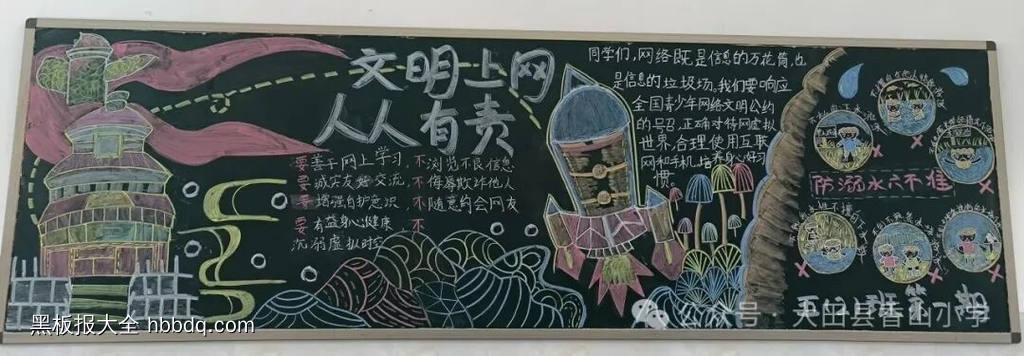 文明上网
人人有责
要善于网上学习,不浏览不良信息
要诚实友好交流,不侮辱欺诈他人
要增强自护意识,不随意约会网友
要有益身心健康,不
沉溺虚拟时空
同学们,网络既是信息的万花筒,也
是信息的垃圾场。我们要响应
全国青少年网络文明公约
的号召,正确对待网虚拟
世界,合理使用互联
网和手机,培养身心好习
惯。
防溺水六不准
五
班第
期
黑板报大全 hbbdq.com
公众号·大田县香山小学